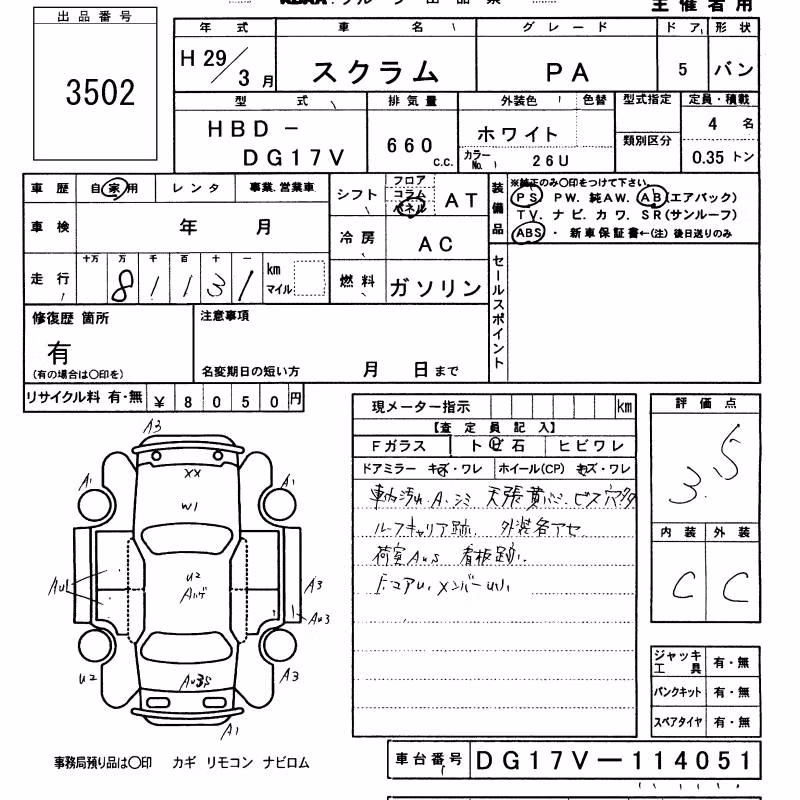 主催者用
出品番号
3502
年式 車名 グレード ドア 形状
H 29/3月 スクラム PA 5 バン
型式 排気量 外装色 色替 型式指定 定員・積載
HBD-
DG17V
660 c.c.
ホワイト
カラーNo. 26U
類別区分
4 名
0.35 トン
車歴 自家用 レンタ 事業.営業車
車検 年 月
走行 十万 万 千 百 十 一
81131 km マイル
シフト フロア コラム パネル AT
冷房 AC
燃料 ガソリン
装備品
※純正のみ〇印をつけて下さい。
PS. PW. 純AW. AB(エアバック)
TV. ナビ. カワ. SR(サンルーフ)
ABS・新車保証書←(注)後日送りのみ
セールスポイント
修復歴 箇所
有
(有の場合は〇印を)
注意事項
名変期日の短い方 月 日まで
リサイクル料 有・無 ¥ 8050円
現メーター指示 km
【査定員記入】
Fガラス トビ石 ヒビワレ
ドアミラー キズ・ワレ ホイール(CP) キズ・ワレ
車内汚れ.A.シミ 天張黄バミ.ビス穴多
ルーフキャリア跡. 外装各アセ
荷室AUS 看板跡.
メンバー
評価点
3.5
内装 外装
C C
A3
A1 XX A1
W1
U2
AU1 A3
AU3
U2 A3
A1
ジャッキ工具 有・無
パンクキット 有・無
スペアタイヤ 有・無
事務局預り品は〇印 カギ リモコン ナビロム
車台番号 DG17V-114051